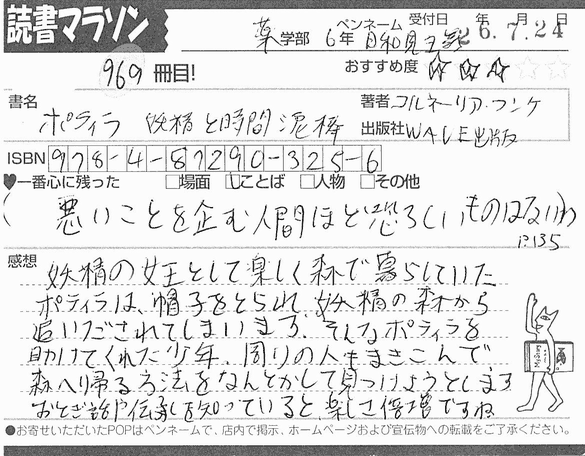 読書マラソン
受付日 年 月 日
26.7.24
薬学部 6年 ペンネーム
969 冊目!
おすすめ度 ☆☆☆☆☆
書名
ポティラ 妖精と時間泥棒
著者 コルネーリア・フンケ
出版社 WAVE出版
ISBN 978-4-87290-325-6
♥一番心に残った □場面 □ことば □人物 □その他
( 悪いことを企む人間ほど恐ろしいものはないわ )
P.135
感想
妖精の女王として楽しく森で暮らしていた
ポティラは、帽子をとられ、妖精の森から
追いだされてしまいます。そんなポティラを
助けてくれた少年、周りの人もまきこんで
森へ帰る方法をなんとかして見つけようとします
おとぎ話や伝承を知っていると、楽しさ倍増ですね
●お寄せいただいたPOPはペンネームで、店内で掲示、ホームページおよび宣伝物への転載をご了承ください。